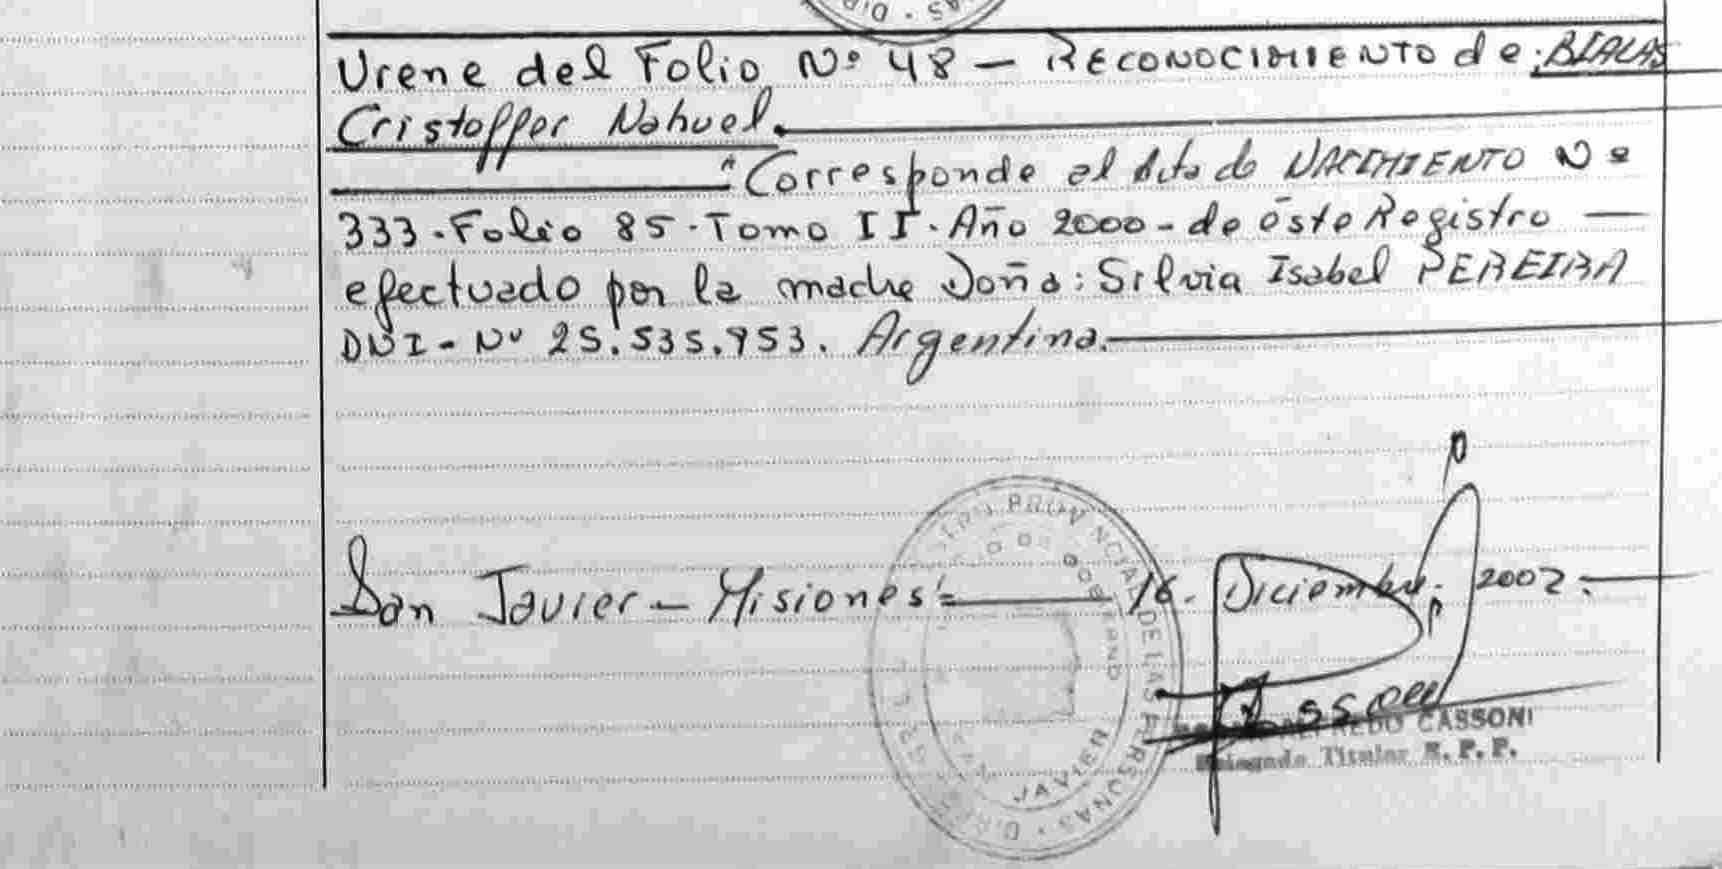 Urene del Folio Nº 48 — RECONOCIMIENTO de: BIALAS
Cristoffer Nahuel.
"Corresponde al Acta de NACIMIENTO Nº
333.Folio 85.Tomo II.Año 2000-de éste Registro —
efectuado por la madre Doña: Silvia Isabel PEREIRA
DNI-Nº 25.535.953. Argentina.
San Javier - Misiones 16. Diciembre. 2002.
PROVINCIAL DE LAS PERSONAS
GOBIERNO
JAVIER
CASSONI
Delegado Titular R. P. P.